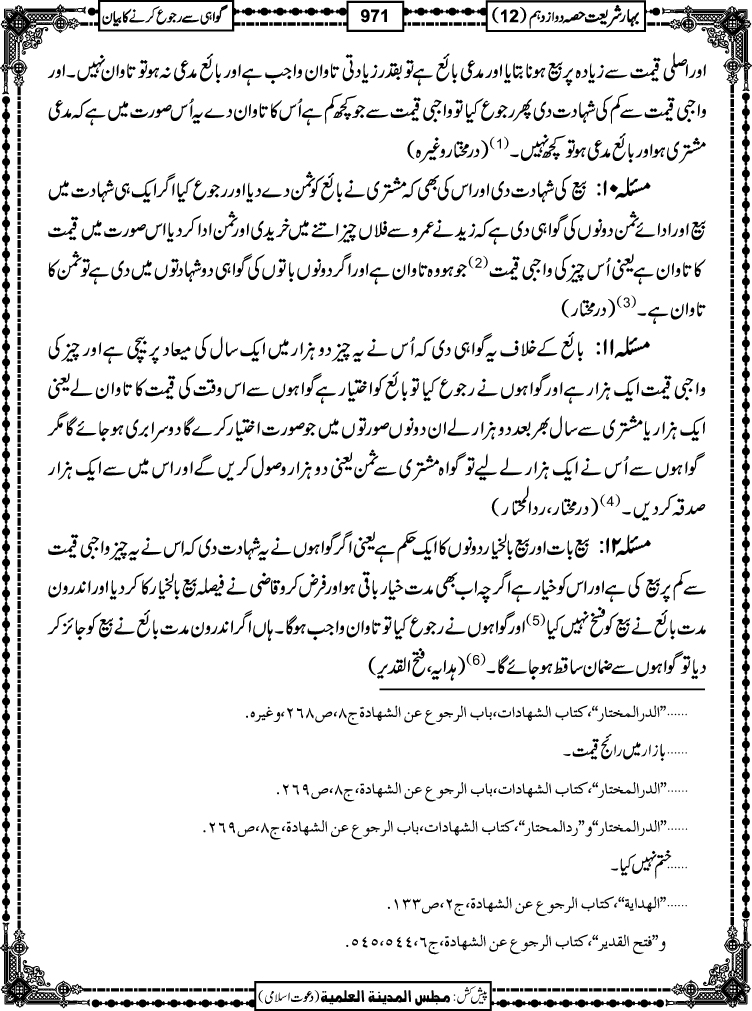 بہارِ شریعت حصہ دوازدہم (12)
971
گواہی سے رجوع کرنے کا بیان
اوراصلی قیمت سے زیادہ پر بیع ہونا بتایا اور مدعی بائع ہے تو بقدر زیادتی تاوان واجب ہے اور بائع مدعی نہ ہو تو تاوان نہیں۔ اور
واجبی قیمت سے کم کی شہادت دی پھر رجوع کیا تو واجبی قیمت سے جو کچھ کم ہے اُس کا تاوان دے یہ اُس صورت میں ہے کہ مدعی
مشتری ہو اور بائع مدعی ہو تو کچھ نہیں۔(1) (درمختار وغیرہ)
مسئلہ ۱۰: بیع کی شہادت دی اور اس کی بھی کہ مشتری نے بائع کو ثمن دے دیا اور رجوع کیا اگر ایک ہی شہادت میں
بیع اور ادائے ثمن دونوں کی گواہی دی ہے کہ زید نے عمرو سے فلاں چیز اتنے میں خریدی اور ثمن ادا کر دیا اس صورت میں قیمت
کا تاوان ہے یعنی اُس چیز کی واجبی قیمت(2) جو ہو وہ تاوان ہے اور اگر دونوں باتوں کی گواہی دو شہادتوں میں دی ہے تو ثمن کا
تاوان ہے۔(3) (درمختار)
مسئلہ ۱۱: بائع کے خلاف یہ گواہی دی کہ اُس نے یہ چیز دو ہزار میں ایک سال کی میعاد پر بیچی ہے اور چیز کی
واجبی قیمت ایک ہزار ہے اور گواہوں نے رجوع کیا تو بائع کو اختیار ہے گواہوں سے اس وقت کی قیمت کا تاوان لے یعنی
ایک ہزار یا مشتری سے سال بھر بعد دو ہزار لے ان دونوں صورتوں میں جو صورت اختیار کرے گا دوسرا بری ہو جائے گا مگر
گواہوں سے اُس نے ایک ہزار لے لیے تو گواہ مشتری سے ثمن یعنی دو ہزار وصول کریں گے اور اس میں سے ایک ہزار
صدقہ کر دیں۔(4) (درمختار، ردالمحتار)
مسئلہ ۱۲: بیع بات اور بیع بالخیار دونوں کا ایک حکم ہے یعنی اگر گواہوں نے یہ شہادت دی کہ اس نے یہ چیز واجبی قیمت
سے کم پر بیع کی ہے اور اس کو خیار ہے اگرچہ اب بھی مدت خیار باقی ہو اور فرض کرو قاضی نے فیصلہ بیع بالخیار کا کر دیا اور اندرون
مدت بائع نے بیع کو فسخ نہیں کیا(5) اور گواہوں نے رجوع کیا تو تاوان واجب ہوگا۔ ہاں اگر اندرون مدت بائع نے بیع کو جائز کر
دیا تو گواہوں سے ضمان ساقط ہو جائے گا۔(6) (ہدایہ، فتح القدیر)
......”الدرالمختار“،کتاب الشھادات،باب الرجوع عن الشھادة،ج۸،ص۲۶۸،وغیرہ.
......بازار میں رائج قیمت۔
......”الدرالمختار“،کتاب الشھادات،باب الرجوع عن الشھادة،ج۸،ص۲۶۹.
......”الدرالمختار“و”ردالمحتار“،کتاب الشھادات،باب الرجوع عن الشھادة،ج۸،ص۲۶۹.
......ختم نہیں کیا۔
......”الھدایة“،کتاب الرجوع عن الشھادة،ج۲،ص۱۳۳.
و”فتح القدیر“،کتاب الرجوع عن الشھادة،ج۶،ص۵٤٤،۵٤۵.
پیش کش: مجلس المدینة العلمیة (دعوت اسلامی)